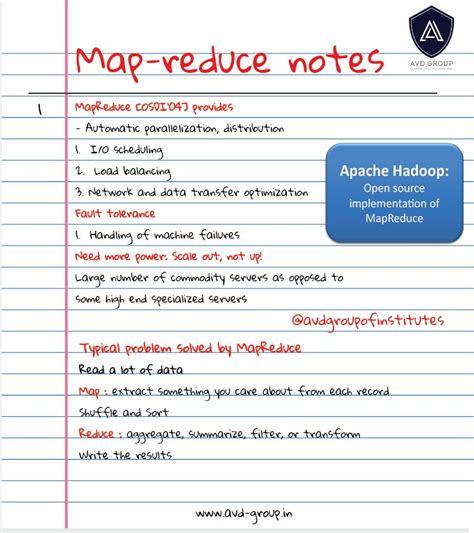 AVD GROUP
Map-reduce notes
1
MapReduce [OSDI'04] provides
- Automatic parallelization, distribution
1. I/O scheduling
2. Load balancing
3. Network and data transfer optimization
Fault tolerance
1. Handling of machine failures
Need more power: Scale out, not up!
Large number of commodity servers as opposed to
some high end specialized servers
Apache Hadoop:
Open source
implementation of
MapReduce
@avdgroupofinstitutes
Typical problem solved by MapReduce
Read a lot of data
Map : extract something you care about from each record
Shuffle and Sort
Reduce : aggregate, summarize, filter, or transform
Write the results
www.avd-group.in